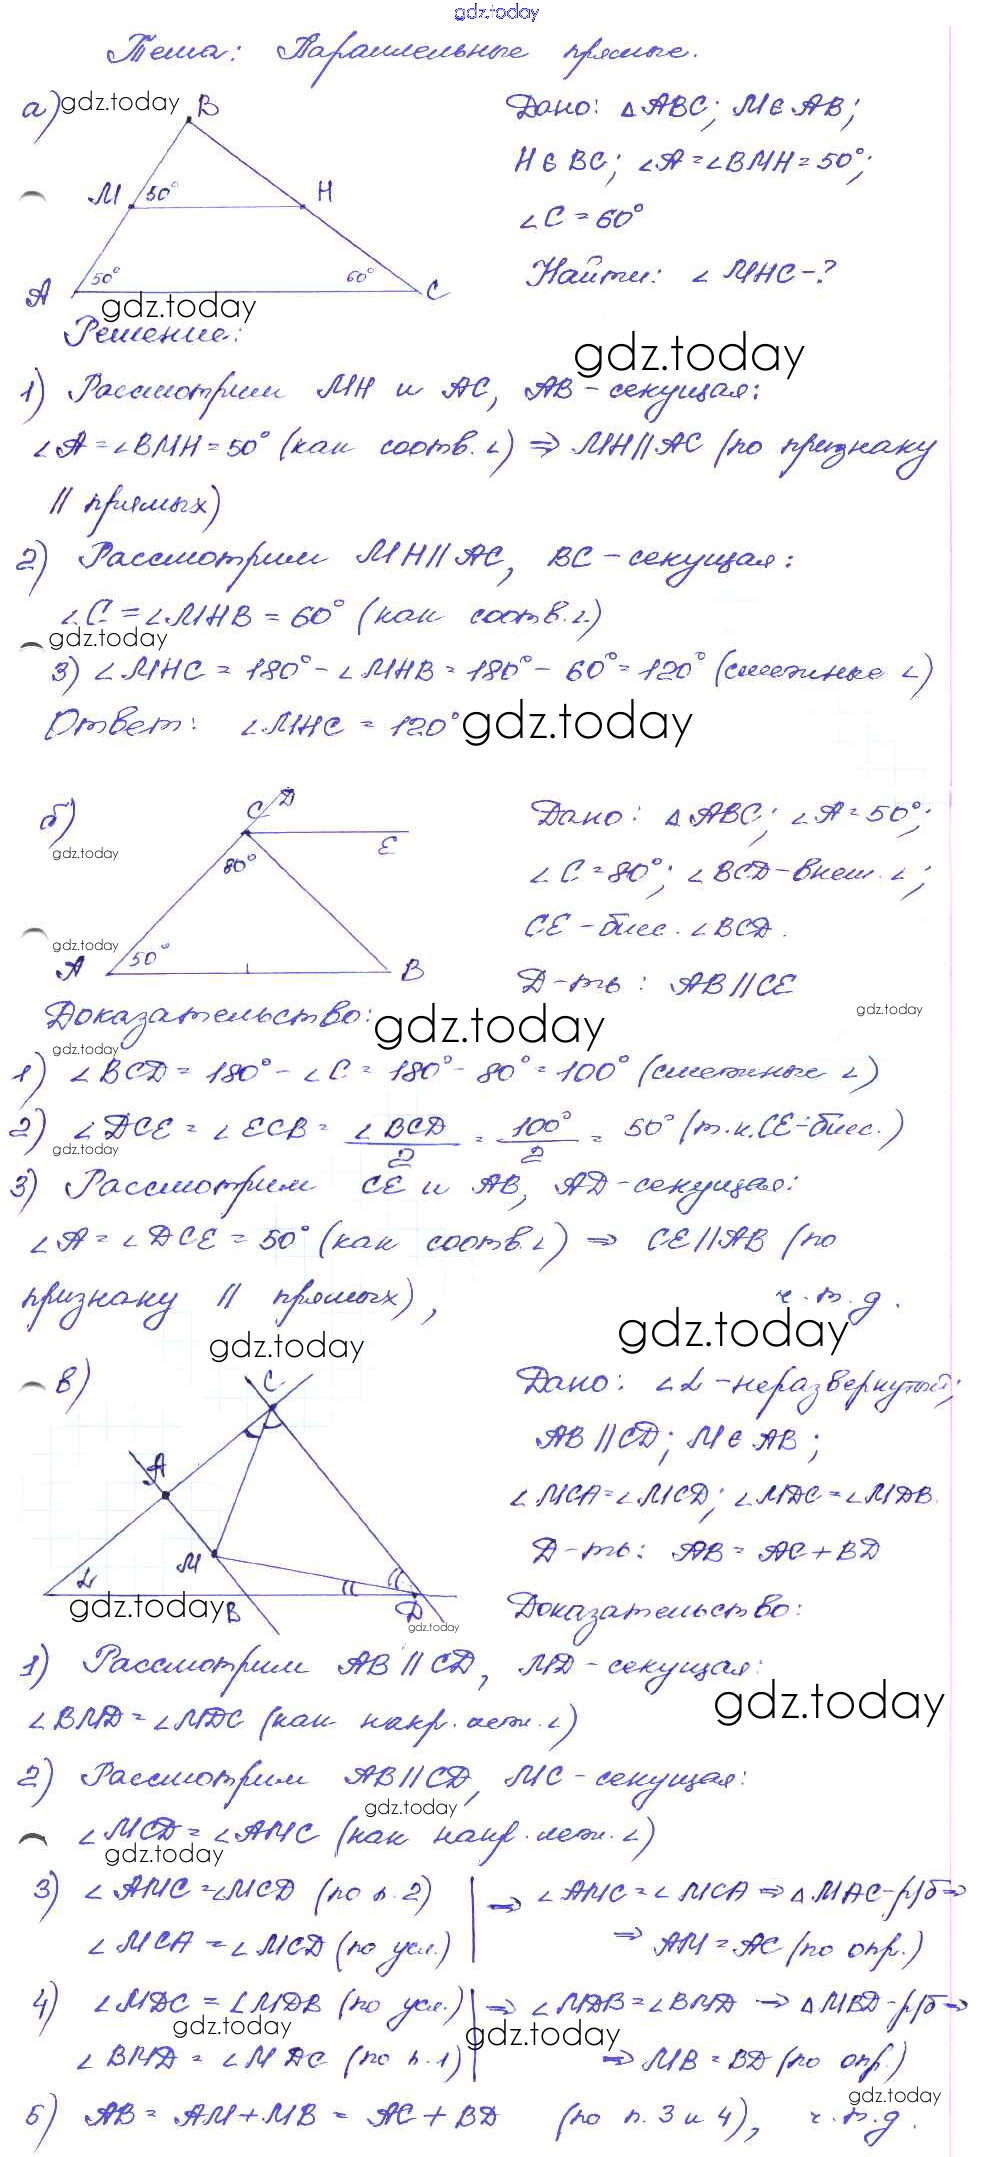 gdz.today
Тема: Параллельные прямые.
а) gdz.today B
Дано: △ABC; M∈AB;
M 50° H
H∈BC; ∠A=∠BMH=50°;
∠C=60°
A 50° 60° C
Найти: ∠MHC-?
gdz.today
Решение:
gdz.today
1) Рассмотрим MH и AC, AB-секущая:
∠A=∠BMH=50° (как соотв.∠) ⇒ MH||AC (по признаку
|| прямых)
2) Рассмотрим MH||AC, BC-секущая:
∠C=∠MHB=60° (как соотв.∠)
gdz.today
3) ∠MHC=180°-∠MHB=180°-60°=120° (смежные ∠)
Ответ: ∠MHC=120° gdz.today
б) C D
Дано: △ABC; ∠A=50°;
gdz.today 80° E
∠C=80°; ∠BCD-внеш.∠;
CE-бисс.∠BCD.
gdz.today
A 50° B
Д-ть: AB||CE
gdz.today
Доказательство:
gdz.today
gdz.today
1) ∠BCD=180°-∠C=180°-80°=100° (смежные ∠)
2) ∠DCE=∠ECB=∠BCD/2=100°/2=50° (т.к.CE-бисс.)
gdz.today
3) Рассмотрим CE и AB, AD-секущая:
∠A=∠DCE=50° (как соотв.∠) ⇒ CE||AB (по
признаку || прямых), ч.т.д.
gdz.today
gdz.today
в) C
Дано: ∠L-неразвернутый;
AB||CD; M∈AB;
A
∠MCA=∠MCD; ∠MDC=∠MDB.
M
Д-ть: AB=AC+BD
L
gdz.today B D
gdz.today
Доказательство:
1) Рассмотрим AB||CD, MD-секущая:
gdz.today
∠BMD=∠MDC (как накр.леж.∠)
2) Рассмотрим AB||CD, MC-секущая:
gdz.today
∠MCD=∠AMC (как накр.леж.∠)
gdz.today
3) ∠AMC=∠MCD (по п.2) | ⇒ ∠AMC=∠MCA ⇒ △MAC-р/б ⇒
∠MCA=∠MCD (по усл.) | ⇒ AM=AC (по опр.)
4) ∠MDC=∠MDB (по усл.) | ⇒ ∠MDB=∠BMD ⇒ △MBD-р/б ⇒
gdz.today gdz.today
∠BMD=∠MDC (по п.1) | ⇒ MB=BD (по опр.)
gdz.today
5) AB=AM+MB=AC+BD (по п.3 и 4), ч.т.д.